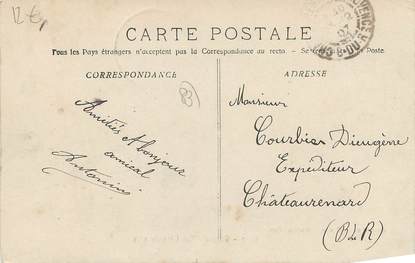 12 €
CARTE POSTALE
Tous les Pays étrangers n'acceptent pas la Correspondance au recto. - Se Poste.
CORRESPONDANCE
ADRESSE
Amitiés & bonjour
amical
Antonin
Monsieur
Courbier Dieugène
Expéditeur
Châteaurenard
(B d R)